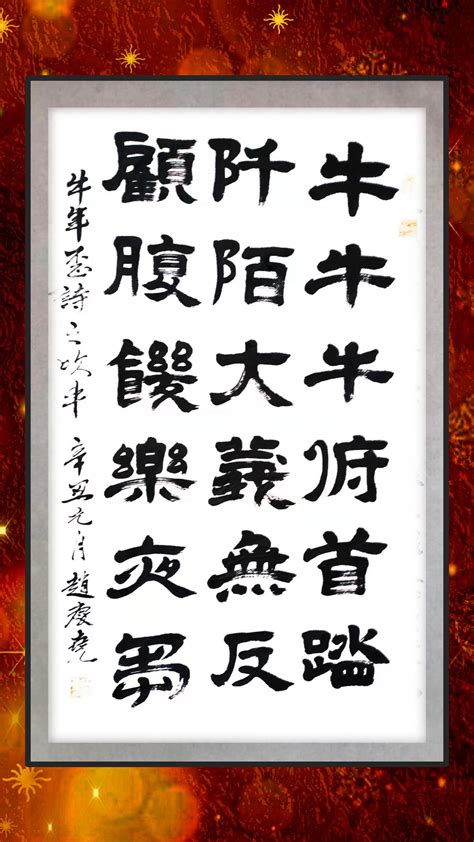 牛牛牛俯首踏
阡陌大義無反
顧腹饑樂夜芻
牛年 詩之 牛 辛丑元月趙慶堯